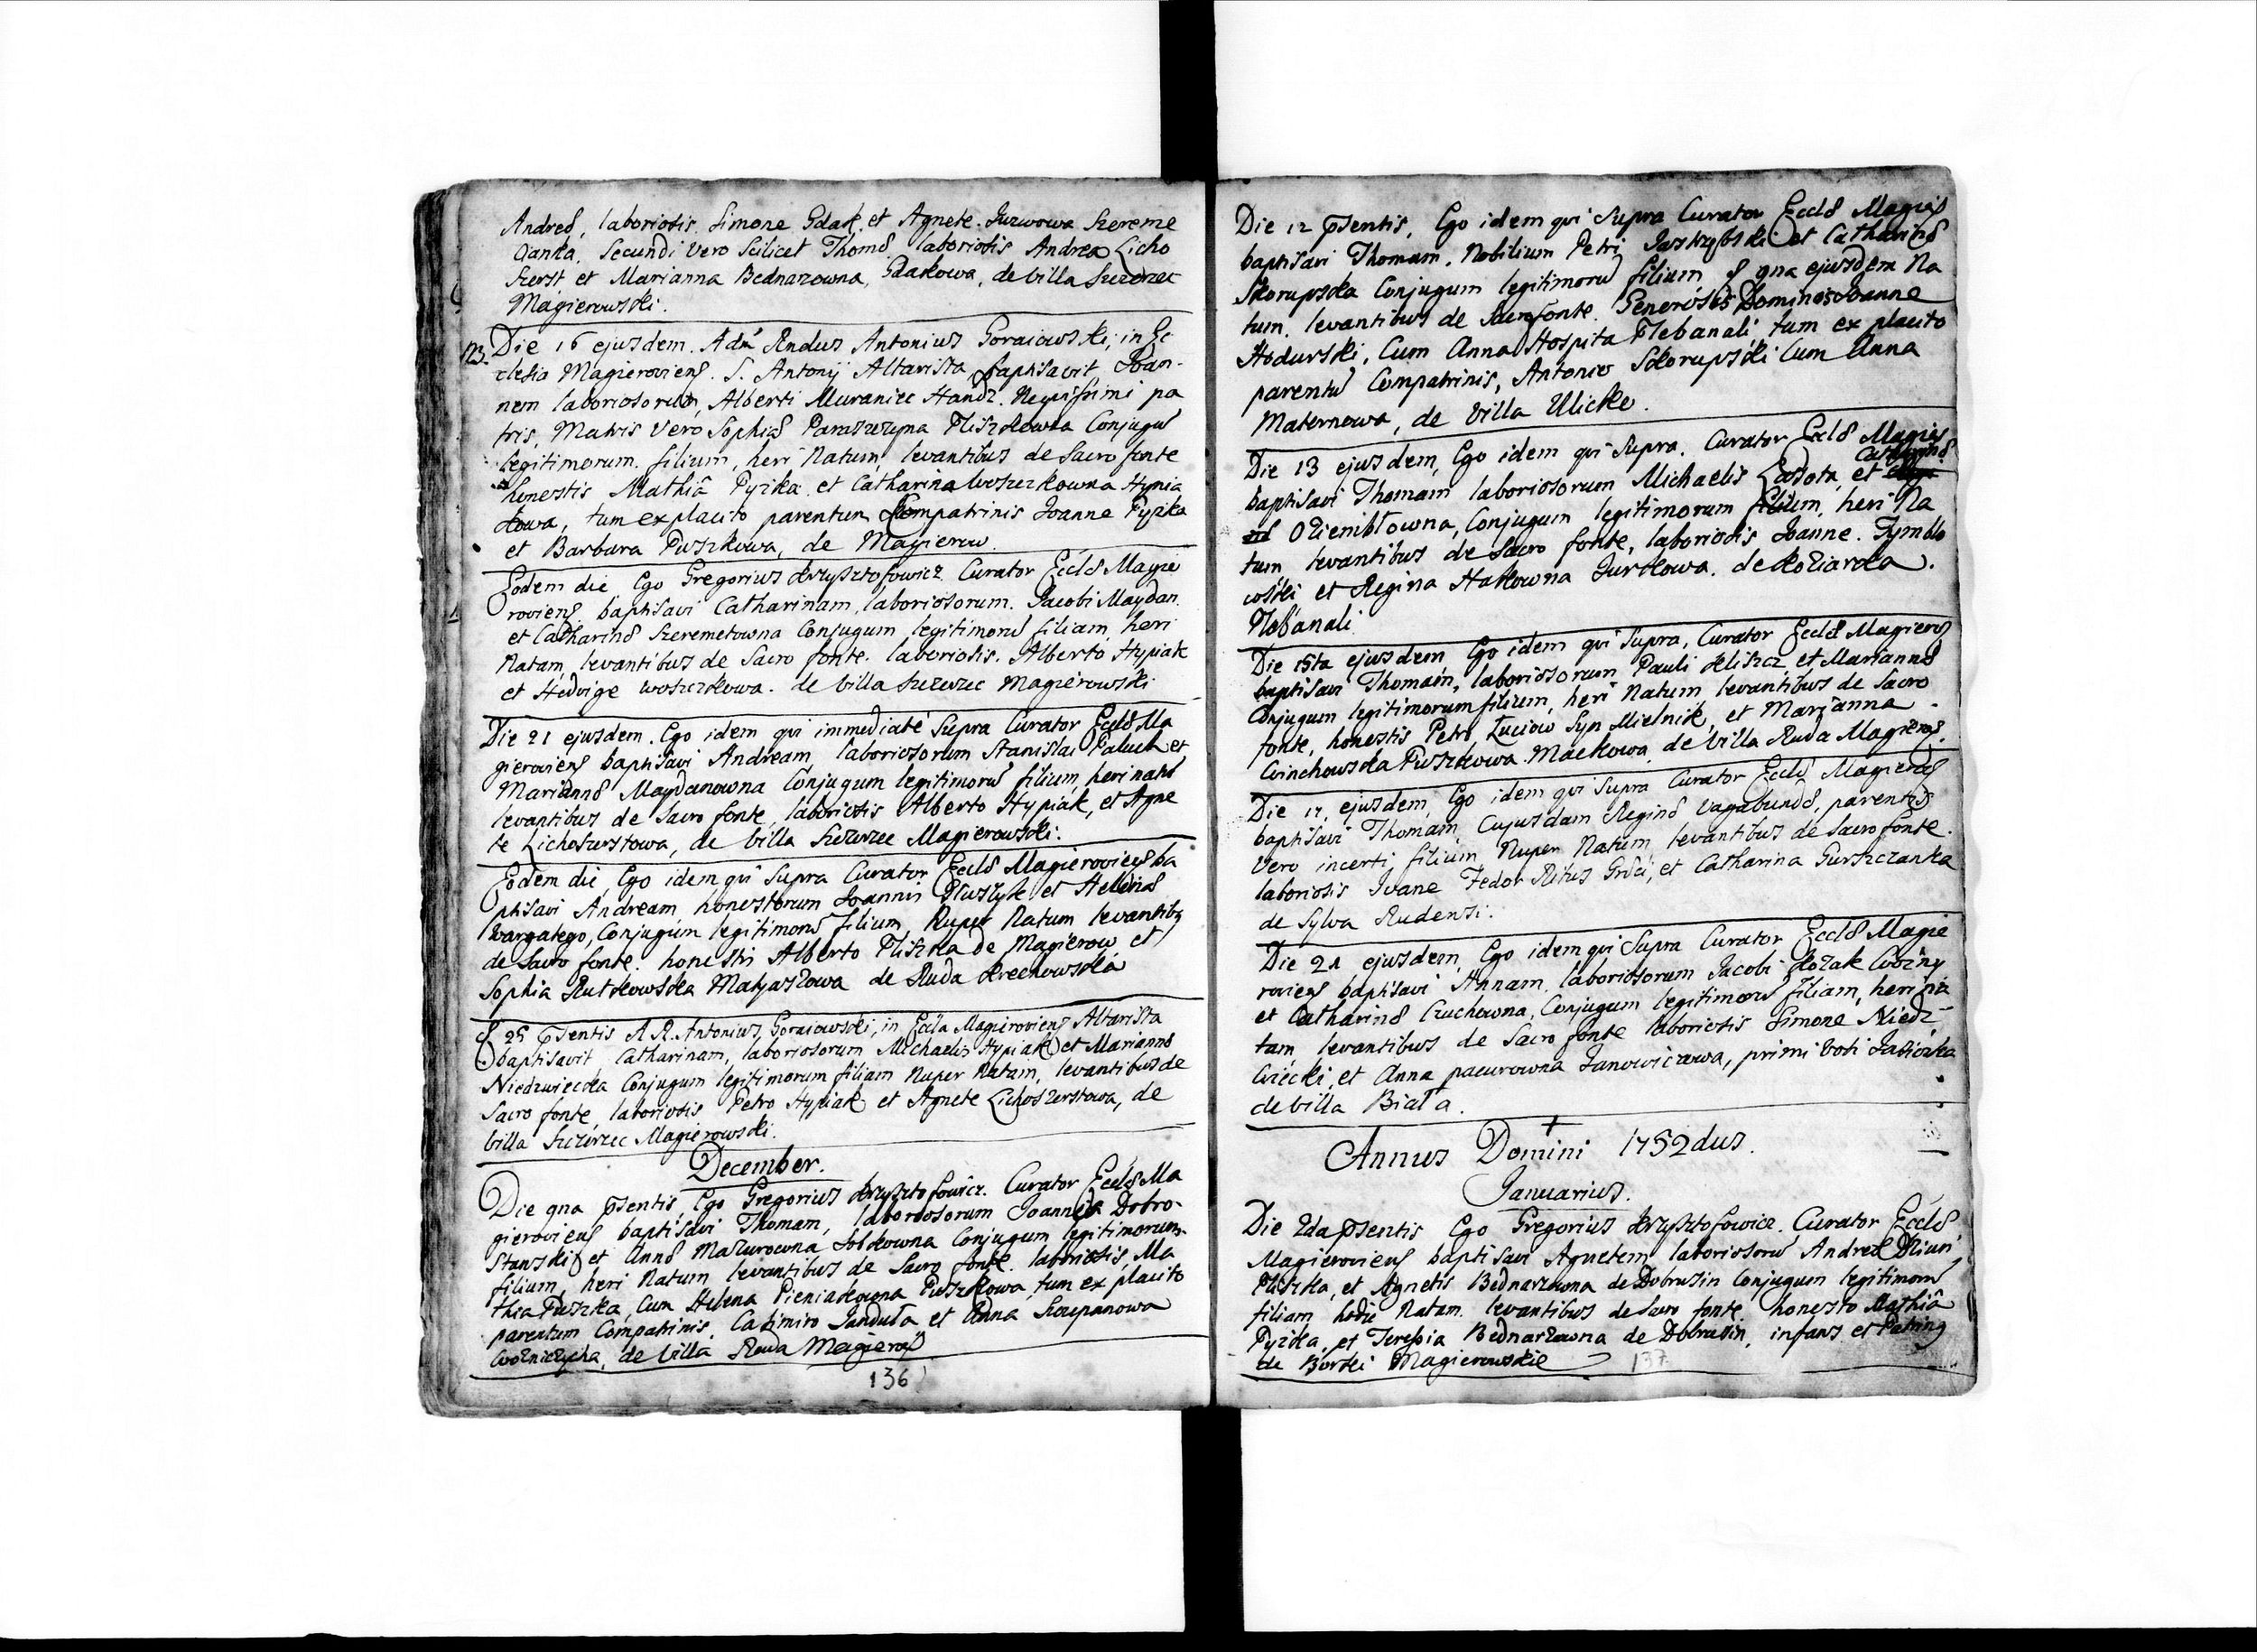 Andreæ, laboriosis. Simone Gdak, et Agnete. Juzwowa Szereme
cianka, Secundi vero Scilicet Thomæ laboriosis Andrea Licho
szerst et Marianna Bednarzowna, Gdakowa, de Villa Szczerzec
Magierowski.
NB. Die 16 ejusdem. Adm Rndus Antonius Goraiowski, in Ec
clesia Magieroviens. S. Antonij Altarista baptisavit Joan-
nem laboriosorum, Alberti Muraniec Handz. Nequissimi pa
tris, Matris vero Sophiæ Paraszczyna Pliszkowna Conjugũ
legitimorum. filium, heri Natum, levantibus de Sacro fonte
honestis Mathiâ Pyzka et Catharina Woszczkowna Hypia
kowa, tum ex placito parentum Compatrinis Joanne Pyzka
et Barbara Puszkowa, de Magierow.
Eodem die Ego Gregorius Krzysztofowicz Curator Ecclæ Magie
roviens baptisavi Catharinam, laboriosorum. Jacobi Maydan
et Catharinæ Szeremetowna Conjugum legitimorũ filiam, heri
Natam, levantibus de Sacro fonte. laboriosis. Alberto Hypiak
et Hedvige Woszczkowa. de Villa Szczerzec Magierowski
Die 21 ejusdem. Ego idem qui immediaté Supra Curator Ecclæ Ma
gieroviens baptisavi Andream, laboriosorum Stanislai Paluch et
Mariannæ Maydanowna Conjugum legitimorũ filium, heri natũ
levantibus de Sacro fonte, laboriosis Alberto Hypiak, et Agne
te Lichoszerstowa, de Villa Szczerzec Magierowski.
Eodem die, Ego idem qui Supra Curator Ecclæ Magieroviens ba
ptisavi Andream, honestorum Joannis et Helenæ
Wargatego, Conjugum legitimorũ filium, Nuper Natum levantibs
de Sacro fonte. honestis Alberto Pliszka de Magierow et
Sophia Rutkowska Matyaszowa de Ruda Krechowska
D 25 præsentis A.R. Antonius, Goraiowski, in Eccla Magieroviens Altarista
baptisavit Catharinam, laboriosorum Michaelis Hypiak et Mariannæ
Niedzwiecka Conjugum legitimorum filiam Nuper Natam, levantibus de
Sacro fonte, laboriosis Petro Hypiak et Agnete Lichoszerstowa, de
Villa Szczerzec Magierowski.
December.
Die qna præsentis, Ego Gregorius Krzysztofowicz. Curator Ecclæ Ma
gieroviens baptisavi Thomam, laboriosorum Joannis Dobro-
stanski et Annæ Mazurowna Sobkowna Conjugum legitimorum
filium, heri Natum levantibus de Sacro fonte. laboriosis, Ma
thia Puszka, Cum Helena Pieniakowna Puszkowa, tum ex placito
parentum Compatrinis, Casimiro Janduła et Anna Szczupanowa
Wozniczycha, de Villa Ruda Magierow
136
Die 12 præsentis, Ego idem qui Supra Curator Ecclæ Magies
baptisavi Thomam. Nobilium Petri Jastrzębski et Catharinæ
Skorupska Conjugum legitimorũ filium, qna ejusdem Na
tum. levantibus de Sacro fonte. Generosis Dominis Joanne
Hodurski, Cum Anna Hospita Plebanali tum ex placito
parentũ Compatrinis, Antonio Skorupski Cum Anna
Maternowa, de Villa Ulicke.
Die 13 ejusdem, Ego idem qui Supra. Curator Ecclæ Magies
baptisavi Thomam laboriosorum Michaelis Lasota, et Catharinæ
Oziembłowna, Conjugum legitimorum filium, heri Na
tum levantibus de Sacro fonte, laboriosis Joanne. Zymbło
wski et Regina Hakowna Jurkowa. de Koziarka.
Plebanali
Die 15ta ejusdem, Ego idem qui Supra, Curator Ecclæ Magierovs
baptisavi Thomam, laboriosorum Pauli Kliszcz et Mariannæ
Conjugum legitimorum filium, heri Natum levantibus de Sacro
fonte, honestis Petro Łuciow Syn Mielnik, et Marianna
Winchowska Puszkowa Mackowa, de Villa Ruda Magierovs.
Die 17. ejusdem, Ego idem qui Supra Curator Ecclæ Magierovs
baptisavi Thomam, Cujusdam Reginæ Vagabundæ, parentis
vero incerti, filium, Nuper Natum levantibus de Sacro fonte.
laboriosis Ivane Fedor Ritus Græci, et Catharina Gurszczanka
de Sylva Rudensi.
Die 21 ejusdem, Ego idem qui Supra Curator Ecclæ Magie
roviens baptisavi Annam, laboriosorum Jacobi Kozak Woźny
et Catharinæ Czuchowna, Conjugum legitimorũ filiam, heri na
tam levantibus de Sacro fonte laboriosis Simone Niedz-
wiecki, et Anna pacurowna Janowiczowa, primi Voti
de Villa Biała.
Annus Domini 1752dus.
Januarius.
Die 2da præsentis Ego Gregorius Krzysztofowicz. Curator Ecclæ
Magieroviens baptisavi Agnetem, laboriosorũ Andreæ
Pliszka, et Agnetis Bednarzowna de Dobrosin Conjugum legitimorũ
filiam hodie Natam. levantibus de Sacro fonte, honesto Mathiâ
Pyzka, et Teressia Bednarzowna de Dobrosin, infans et Patrinus
de Borki Magierowskie
137